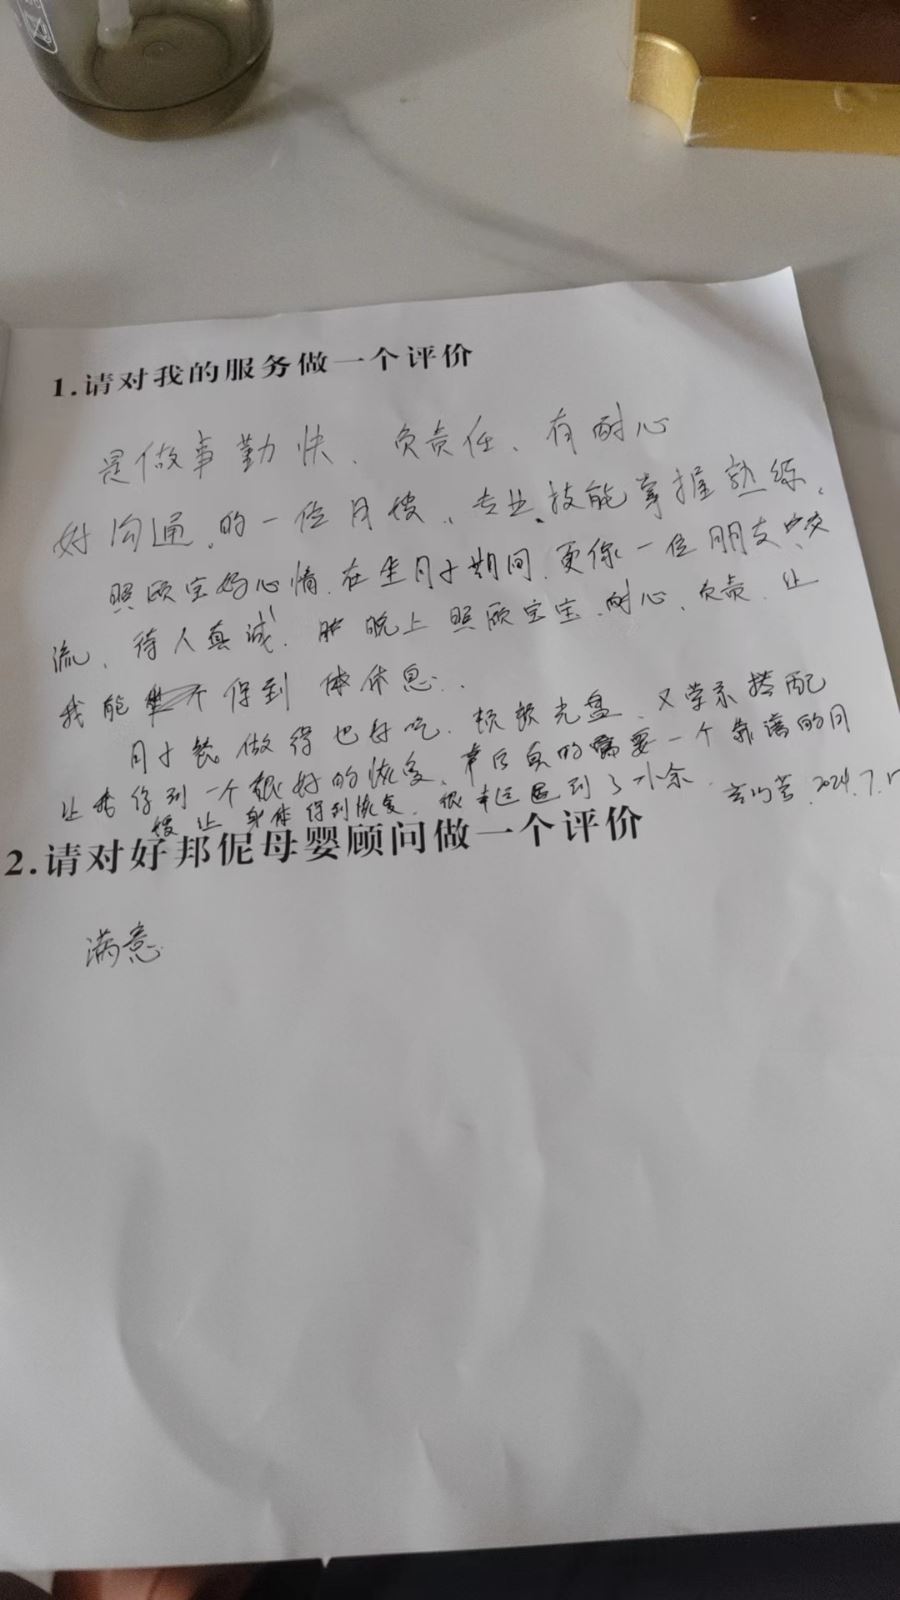 1.请对我的服务做一个评价
是做事勤快、负责任、有耐心
好沟通的一位月嫂，专业技能掌握熟练，
照顾宝妈心情，在坐月子期间，更像一位朋友交
流、待人真诚，晚上照顾宝宝，耐心、负责，让
我能得到休息。
月子餐做得也好吃，顿顿光盘，又学系搭配
让我得到一个很好的恢复，幸后真的需要一个靠谱的月
嫂让身体得到恢复，很幸运遇到了小余。 2024.7.17
2.请对好邦伲母婴顾问做一个评价
满意